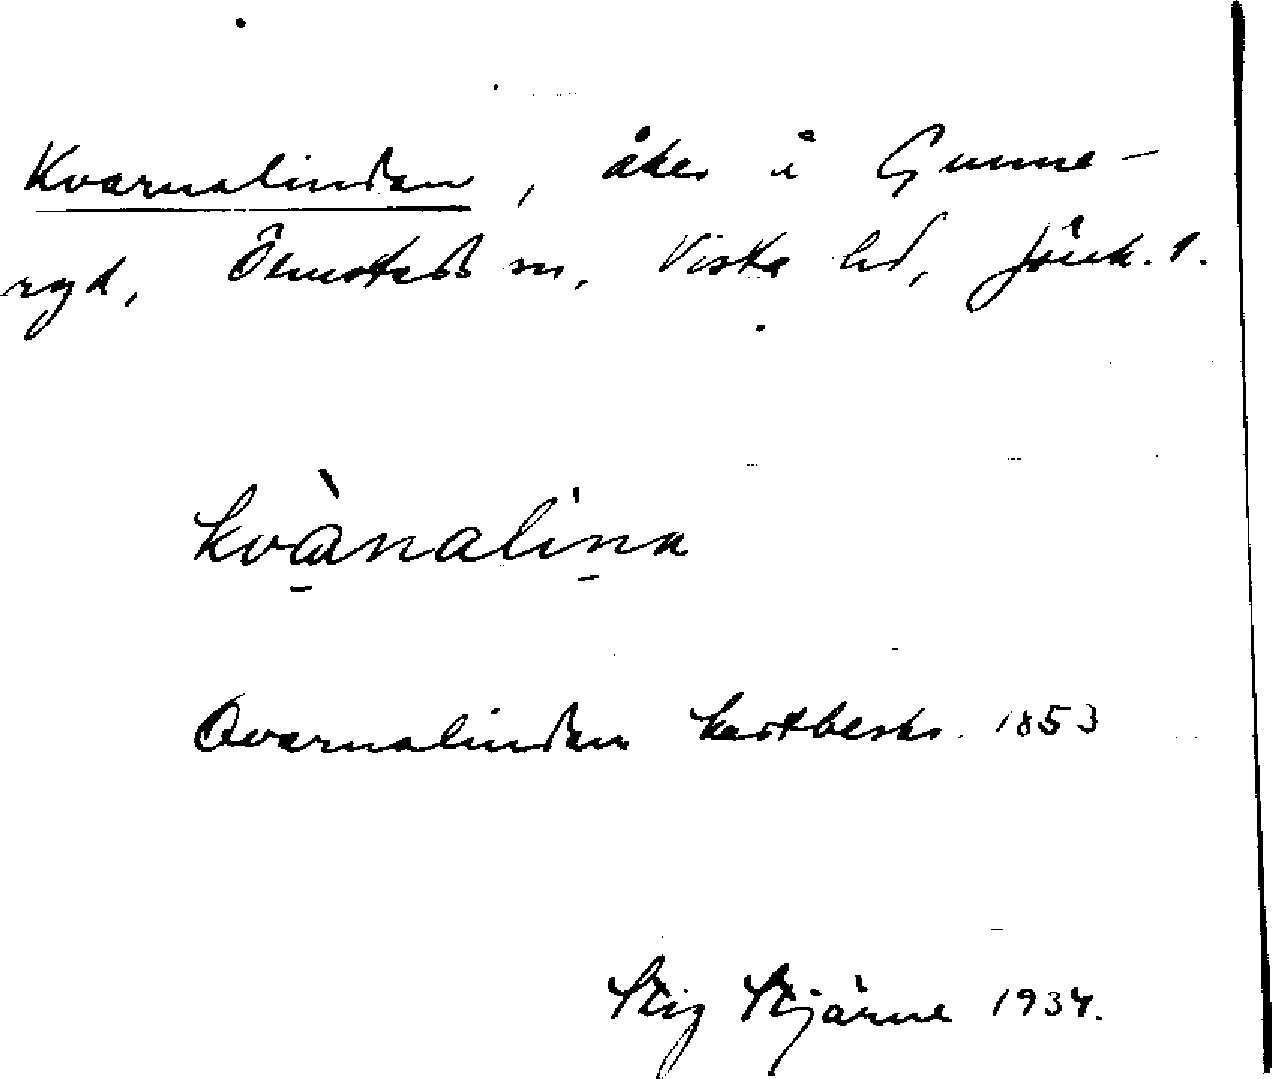 Kvarnalindan, åker i Gunne-
ryd, Ölmstads sn, Vista hd, Jönk. l.
kvànalina
Qvarnalindan kartbeskr. 1853
Stig Stjärne 1934.